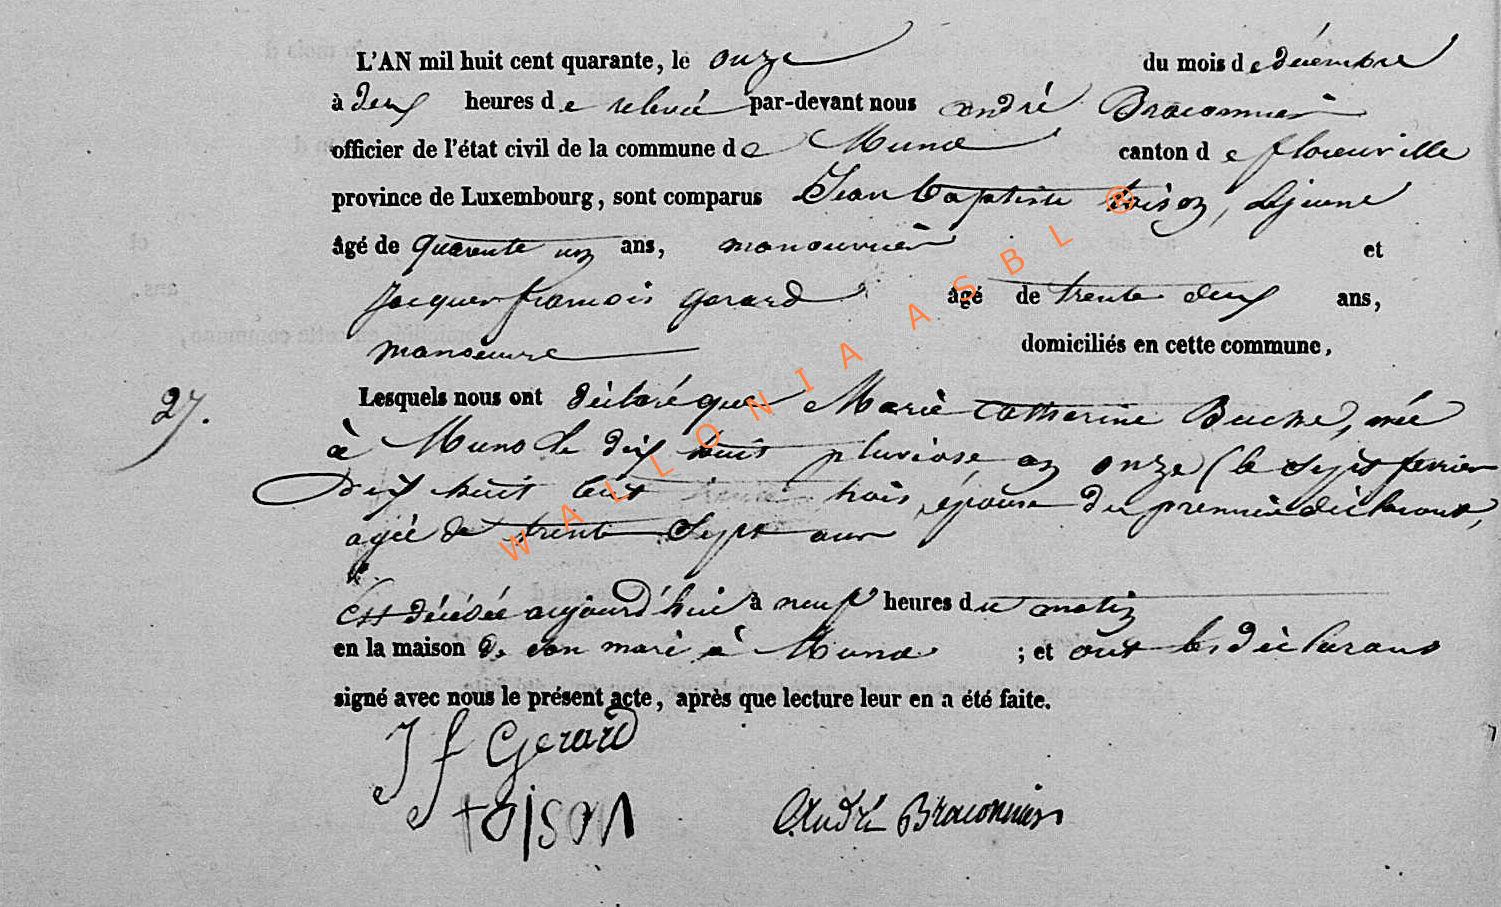 L'AN mil huit cent quarante, le onze du mois de décembre
à deux heures de relevée par-devant nous andré Braconnier
officier de l'état civil de la commune de Muno canton de florenville
province de Luxembourg, sont comparus Jean baptiste toison, lejeune
âgé de quarente un ans, manouvrier et
Jacques francois Gerard âgé de trente deux ans,
manoeuvre domiciliés en cette commune,
27.
Lesquels nous ont déclaré que Marie Catherine Buche, née
à Muno le dix huit pluviose an onze (le sept fevrier
Dix huit cent trois, épouse du premier déclarant,
agée de trente sept ans
Est décédée aujourd'hui à neuf heures du matin
en la maison de son mari à Muno ; et ont les déclarans
signé avec nous le présent acte, après que lecture leur en a été faite.
J f Gerard
toison André Braconnier
WALLONIA ASBL ®